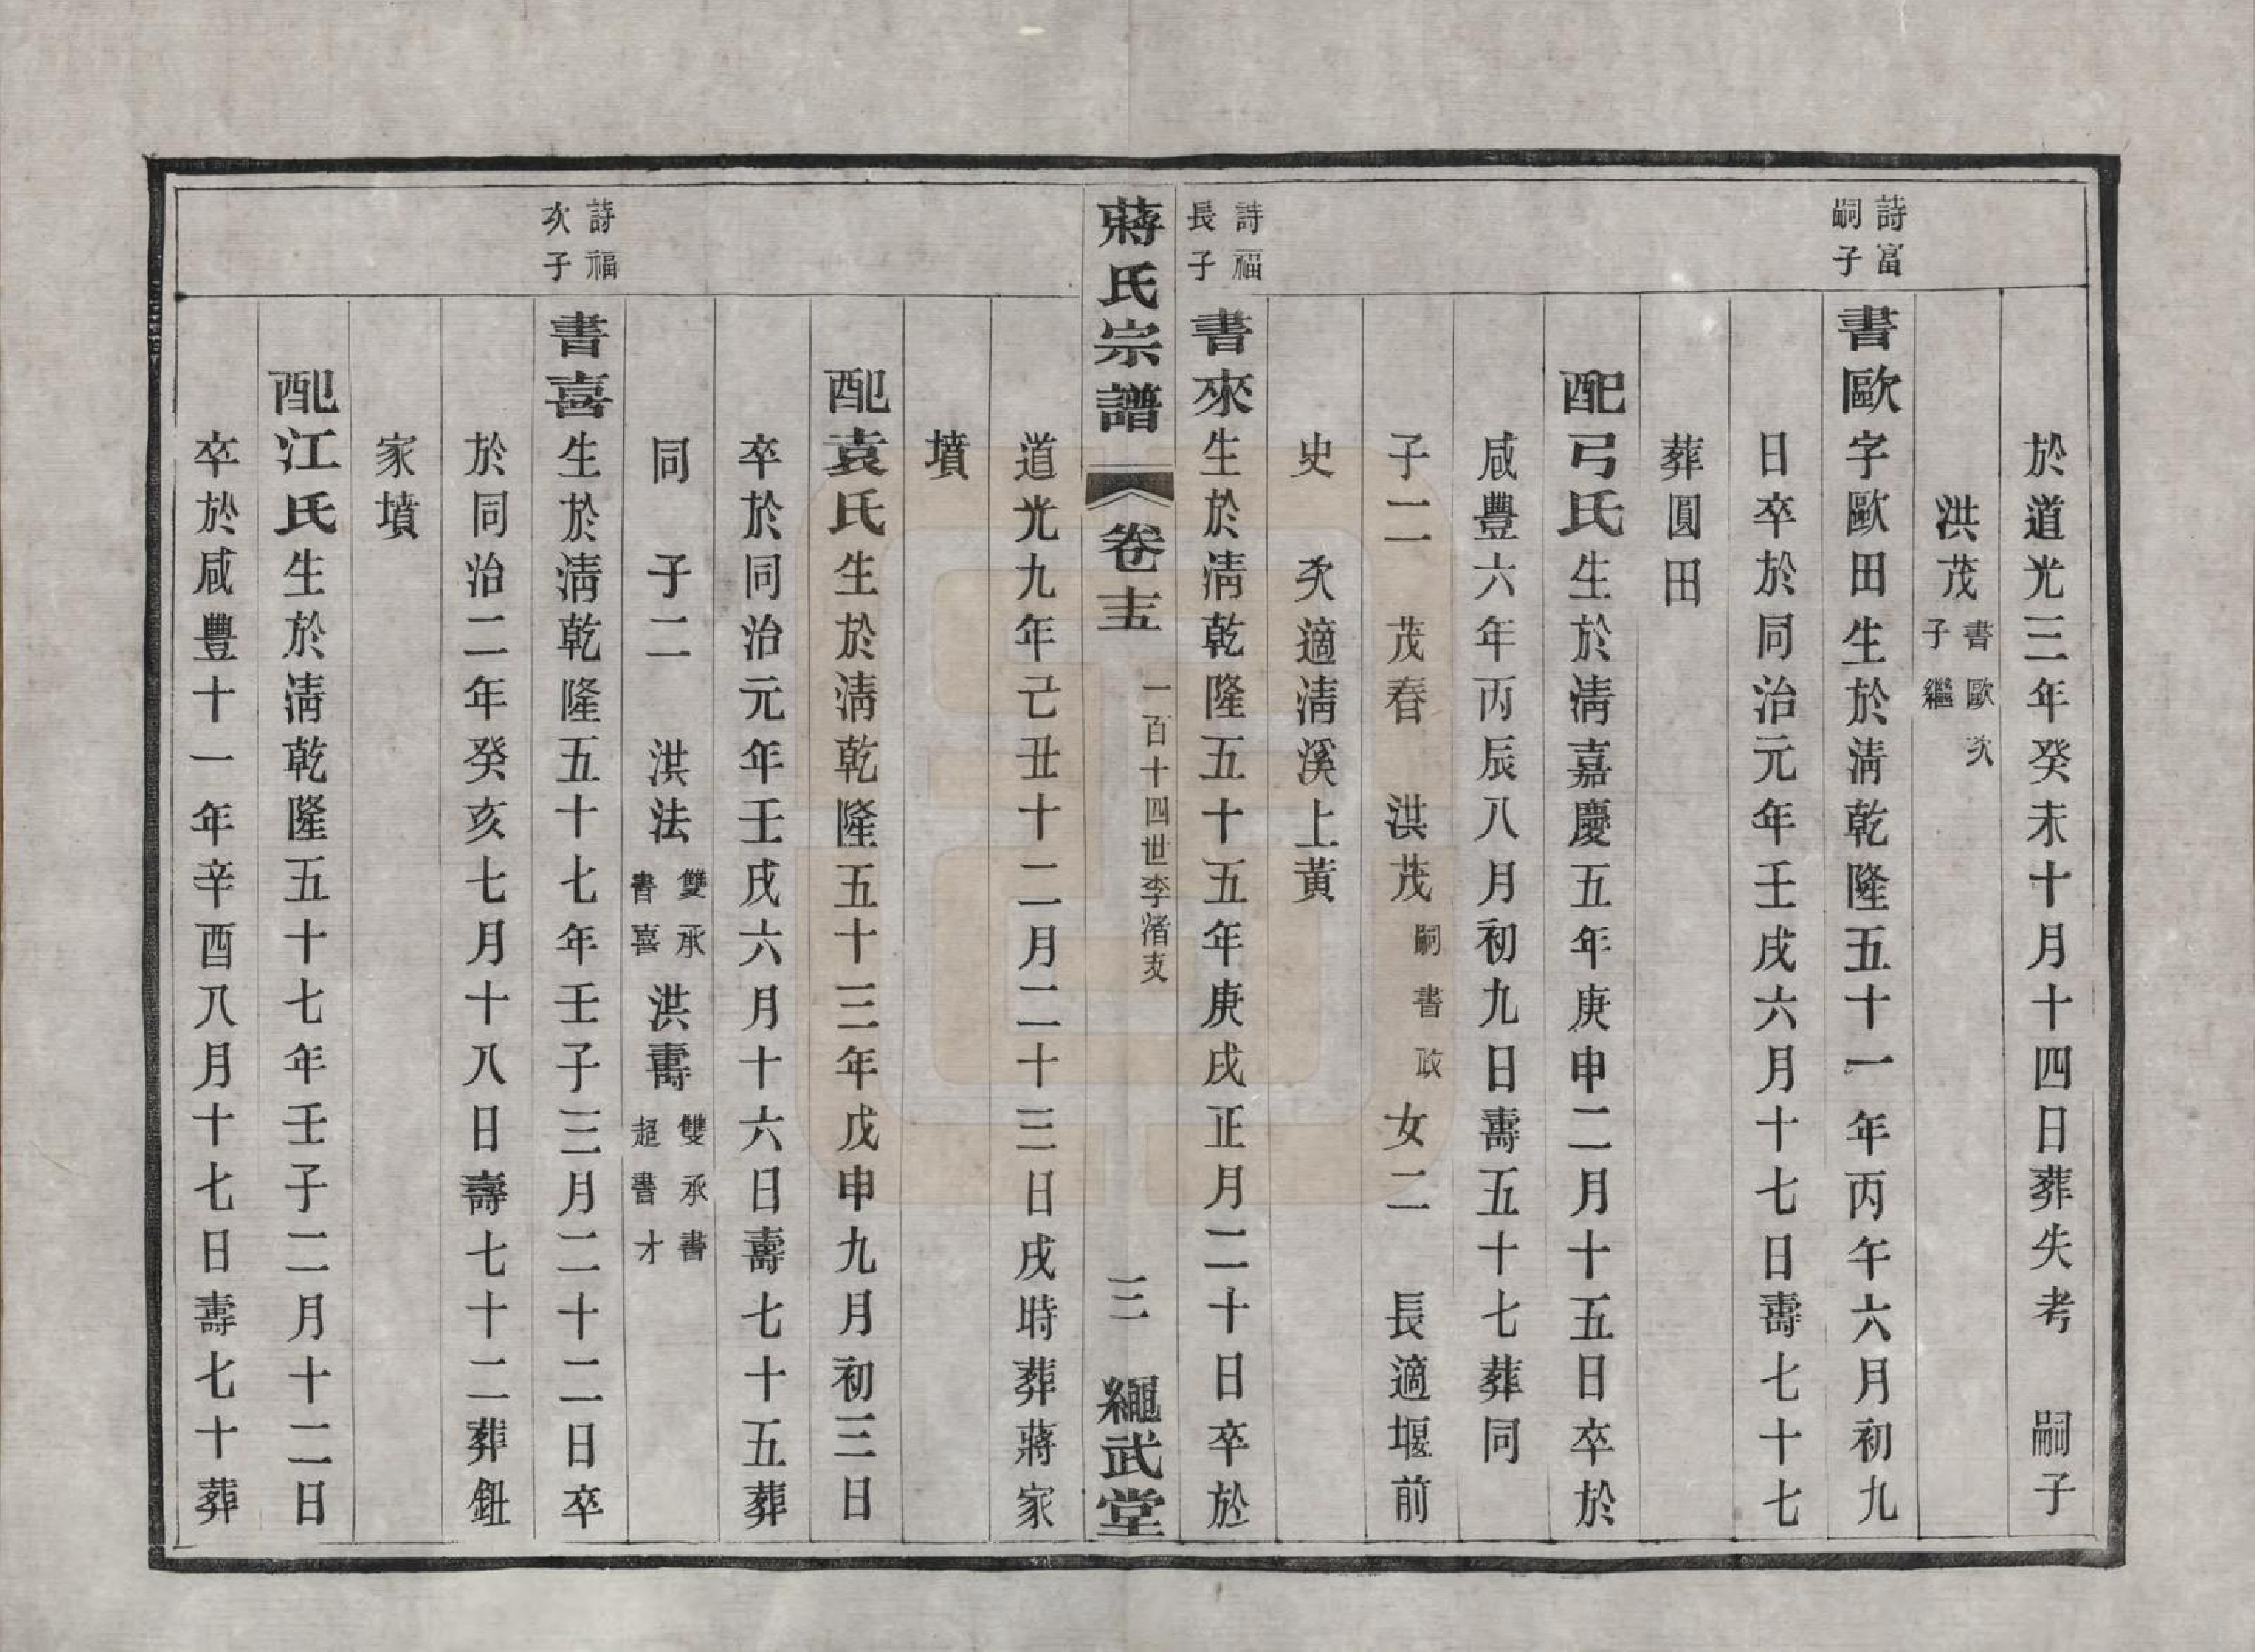 於道光三年癸未十月十四日葬失考 嗣子
洪茂書歐次子繼
詩富嗣子
書歐字歐田生於淸乾隆五十一年丙午六月初九
日卒於同治元年壬戌六月十七日壽七十七
葬圓田
配弓氏生於淸嘉慶五年庚申二月十五日卒於
咸豐六年丙辰八月初九日壽五十七葬同
子二 茂春 洪茂嗣書政 女二 長適堰前
史 次適淸溪上黃
詩福長子
書來生於淸乾隆五十五年庚戌正月二十日卒於
蔣氏宗譜 卷十五 一百十四世李渚支 三 繩武堂
道光九年己丑十二月二十三日戌時葬蔣家
墳
配袁氏生於淸乾隆五十三年戊申九月初三日
卒於同治元年壬戌六月十六日壽七十五葬
同 子二 洪法雙承書喜 洪壽雙承書超書才
詩福次子
書喜生於淸乾隆五十七年壬子三月二十二日卒
於同治二年癸亥七月十八日壽七十二葬鈕
家墳
配江氏生於淸乾隆五十七年壬子二月十二日
卒於咸豐十一年辛酉八月十七日壽七十葬